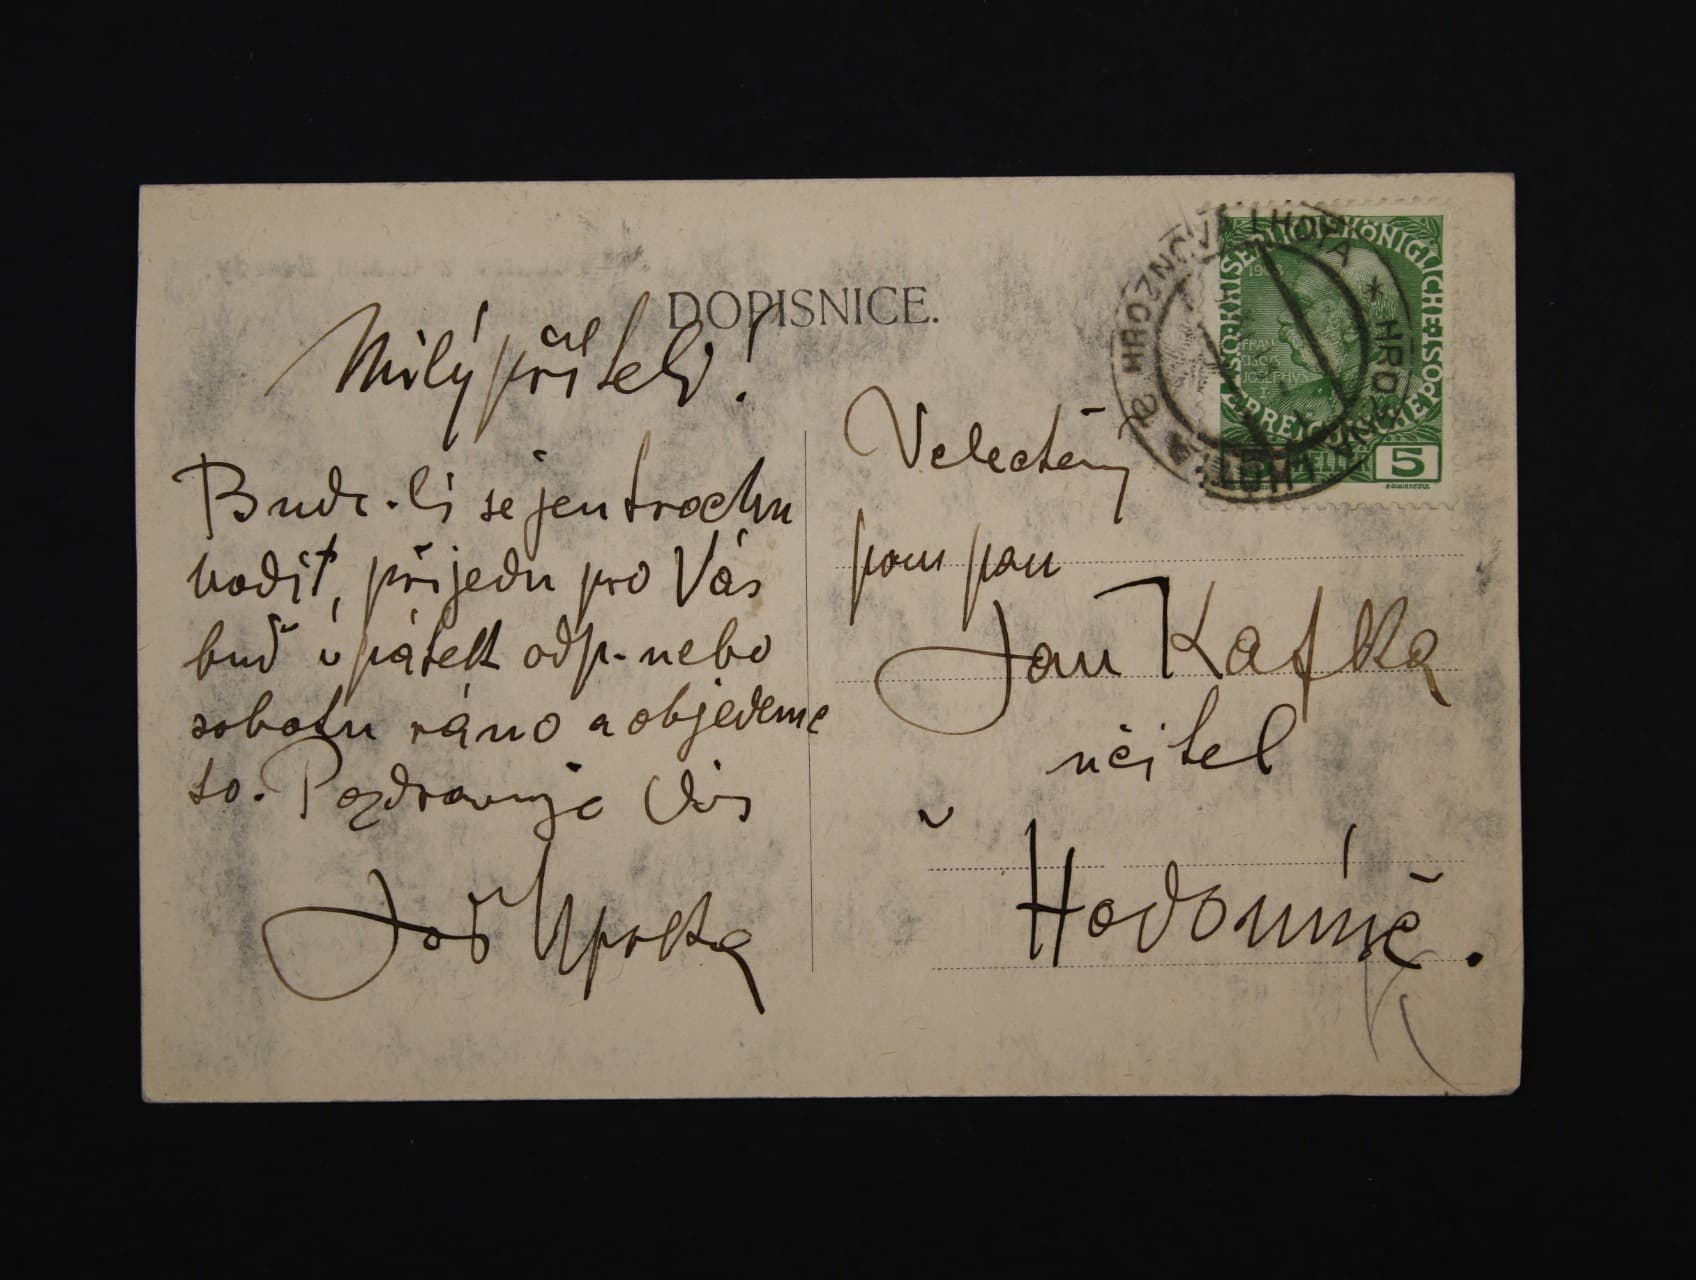 DOPISNICE.
Milý příteli!
Bude-li se jen trochu
hodit, přijedu pro Vás
buď v pátek odp. nebo
sobotu ráno a objedeme
to. Pozdravuje Vás
Jož Uprka
HROZNOVÁ LHOTA * HROZNOVÁ LHOTA
KAISERLICHE KÖNIGLICHE POST
ÖSTERREICHISCHE
1908
FRAN
CISCVS
JOSEPHVS
I
5 HELLER 5
Velectěný
pan pan
Jan Kafka
učitel
v
Hodoníně.